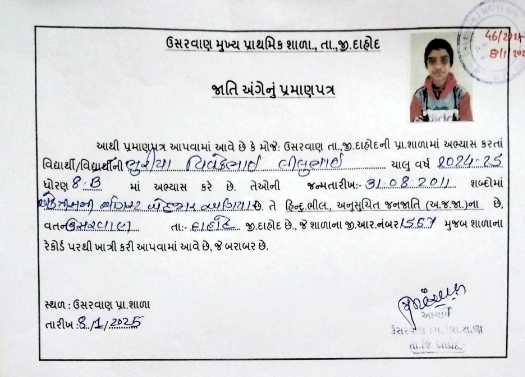 ઉસરવાણ મુખ્ય પ્રાથમિક શાળા., તા.,જી.દાહોદ
46/2024
8/1/202
જાતિ અંગેનું પ્રમાણપત્ર
આથી પ્રમાણપત્ર આપવામાં આવે છે કે મોજે: ઉસરવાણ તા.,જી.દાહોદની પ્રા.શાળામાં અભ્યાસ કરતાં
વિદ્યાર્થી/વિદ્યાર્થીની ભુરીયા વિવેકભાઈ ચાલુ વર્ષ 2024-25
ધોરણ 8-B માં અભ્યાસ કરે છે. તેઓની જન્મતારીખ:- 31.08.2011 શબ્દોમાં
એકત્રીસમી ઓગસ્ટ બે હજાર અગિયાર છે. તે હિન્દુ ભીલ, અનુસુચિત જનજાતિ (અ.જ.જા.)ના છે,
વતન ઉસરવાણ તા:- દાહોદ જી.દાહોદ છે., જે શાળાના જી.આર.નંબર 1557 મુજબ શાળાના
રેકોર્ડ પરથી ખાત્રી કરી આપવામાં આવે છે, જે બરાબર છે.
સ્થળ : ઉસરવાણ પ્રા.શાળા
તારીખ :8/1/2025
આચાર્ય